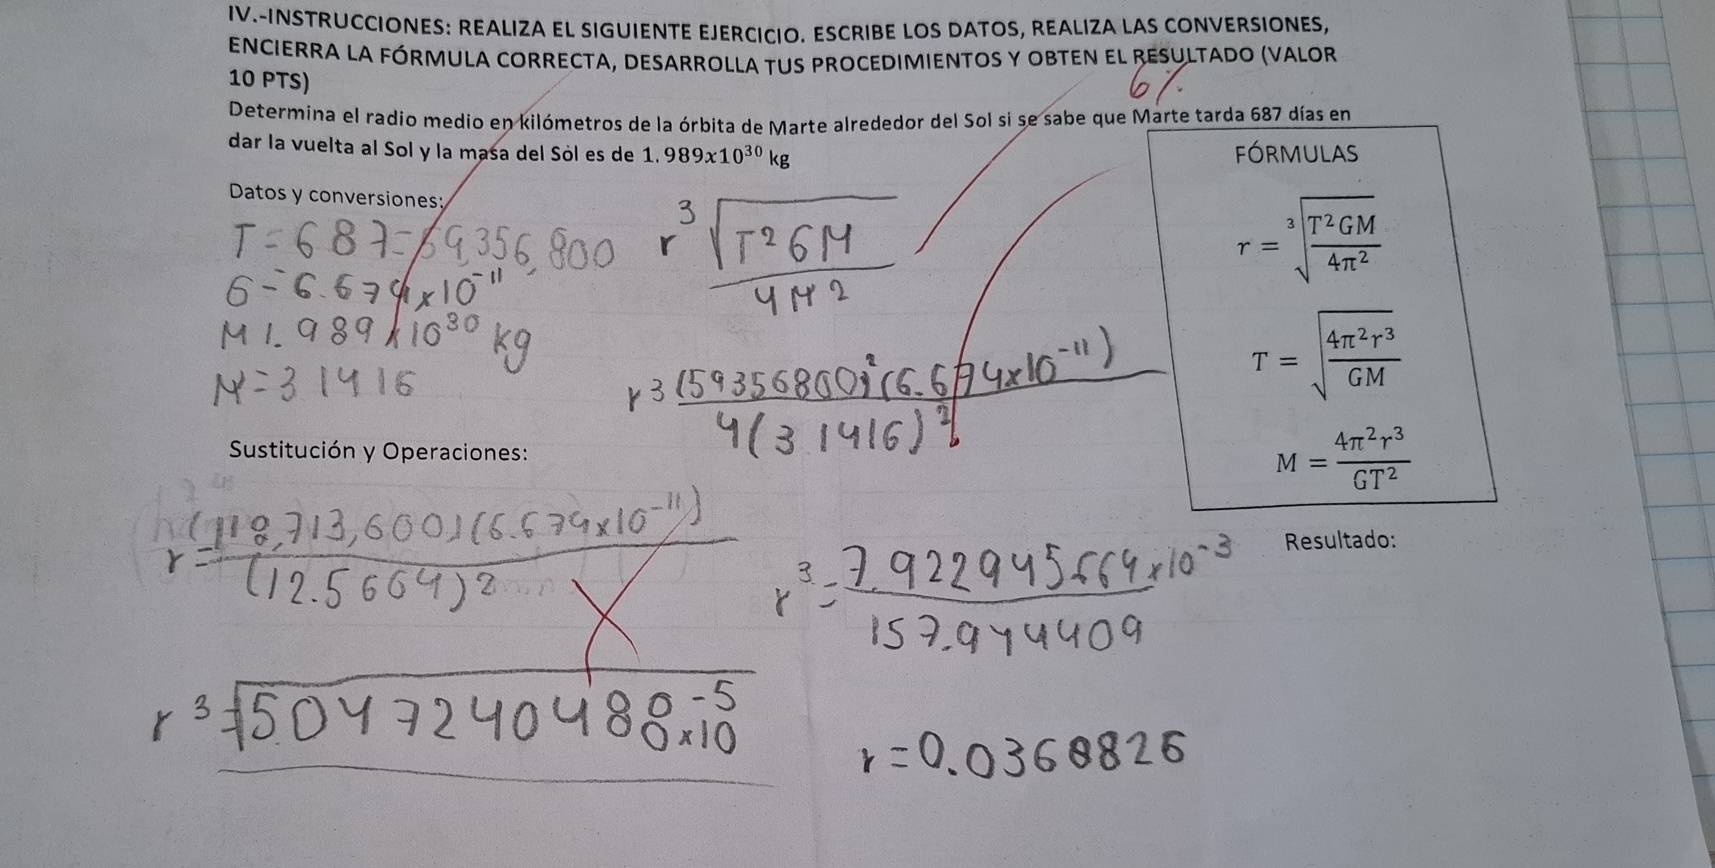 IV.-INSTRUCCIONES: REALIZA EL SIGUIENTE EJERCICIO. ESCRIBE LOS DATOS, REALIZA LAS CONVERSIONES,
ENCIERRA LA FÓRMULA CORRECTA, DESARROLLA TUS PROCEDIMIENTOS Y OBTEN EL RESULTADO (VALOR
10 PTS)
6/.
Determina el radio medio en kilómetros de la órbita de Marte alrededor del Sol si se sabe que Marte tarda 687 días en
dar la vuelta al Sol y la masa del Sol es de 1.989x10³⁰ kg
Datos y conversiones:
T = 687 = 59,356,800
G = 6.674x10⁻¹¹
M 1.989x10³⁰ kg
π = 31416
r ³√T²GM
4π²
r³ (59356800)²(6.674x10⁻¹¹)
4(31416)²
FÓRMULAS
r = ³√T²GM / 4π²
T = √4π²r³ / GM
M = 4π²r³ / GT²
Sustitución y Operaciones:
r = (118,713,600)(6.674x10⁻¹¹)
(12.5664)²
r³ = 7.922945664x10⁻³
157.914409
Resultado:
r ³√5.0472404808x10⁻⁵
r = 0.0368826